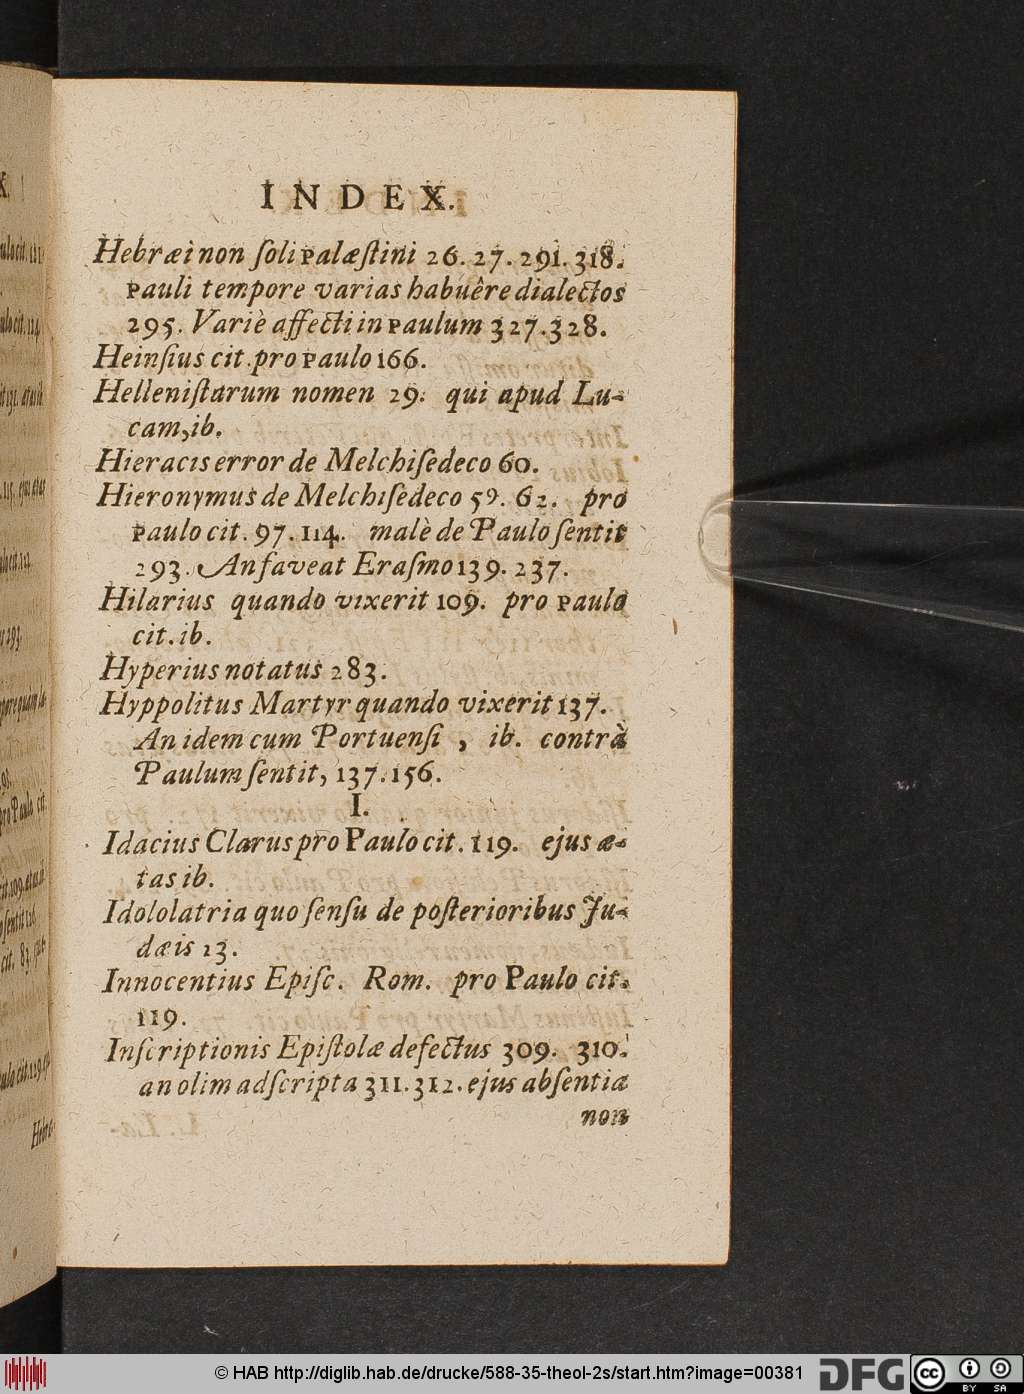 INDEX.
Hebræi non ſoli Palæſtini 26. 27. 291. 318.
Pauli tempore varias habuêre dialectos
295. Variè affecti in Paulum 327. 328.
Heinſius cit. pro Paulo 166.
Helleniſtarum nomen 29. qui apud Lu-
cam, ib.
Hieracis error de Melchiſedeco 60.
Hieronymus de Melchiſedeco 59. 62. pro
Paulo cit. 97. 114. malè de Paulo ſentit
293. An faveat Eraſmo 139. 237.
Hilarius quando vixerit 109. pro Paulo
cit. ib.
Hyperius notatus 283.
Hyppolitus Martyr quando vixerit 137.
An idem cum Portuenſi, ib. contrà
Paulum ſentit, 137. 156.
I.
Idacius Clarus pro Paulo cit. 119. ejus æ-
tas ib.
Idololatria quo ſenſu de poſterioribus Ju-
dæis 13.
Innocentius Epiſc. Rom. pro Paulo cit.
119.
Inſcriptionis Epiſtolæ defectus 309. 310.
an olim adſcripta 311. 312. ejus abſentia
non
© HAB http://diglib.hab.de/drucke/588-35-theol-2s/start.htm?image=00381
DFG
cc BY SA